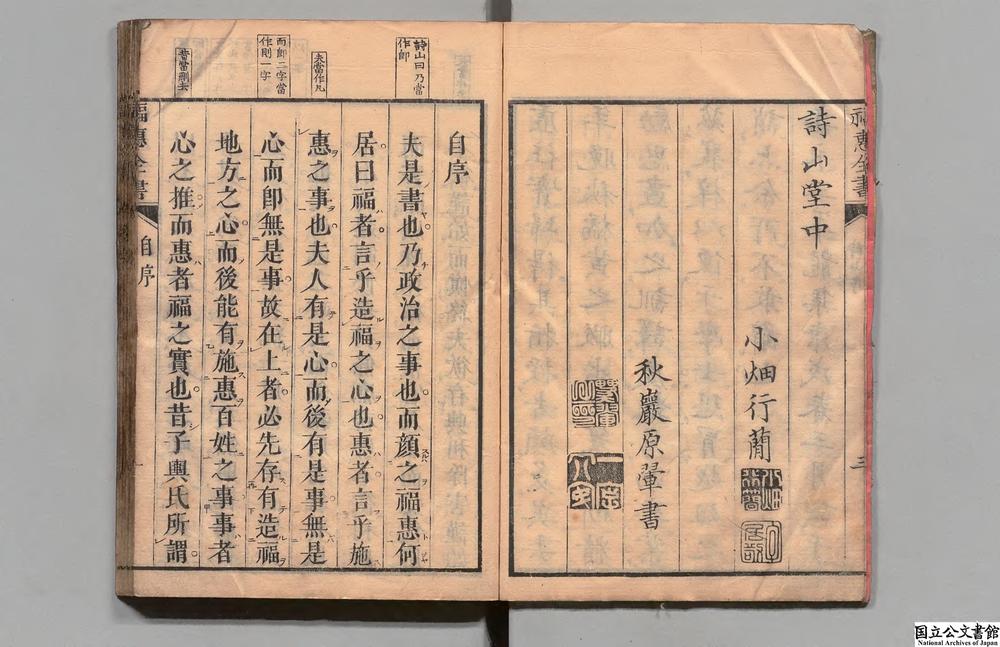 福惠全書
三
詩山堂中
小畑行蕳
秋巖原翬書
自序
夫是書也乃政治之事也而顔之福惠何
居曰福者言乎造福之心也惠者言乎施
惠之事也夫人有是心而後有是事無是
心而卽無是事故在上者必先存有造福
地方之心而後能有施惠百姓之事事者
心之推而惠者福之實也昔子輿氏所謂
詩山曰乃當
作卽
夫當作凡
而卽二字當
作則一字
昔當刪去
福惠全書
自序
一
国立公文書館
National Archives of Japan